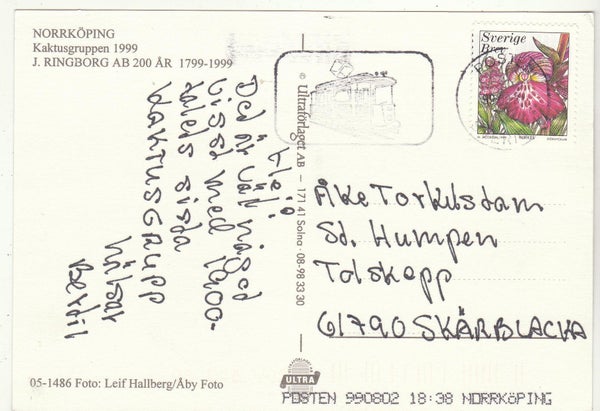 NORRKÖPING
Kaktusgruppen 1999
J. RINGBORG AB 200 ÅR 1799-1999
Hej!
Det är väl något
visst med 1900-
talets sista
KAKTUSGRUPP
hälsar
Bertil
© Ultraförlaget AB - 171 41 Solna · 08-98 33 30
Sverige
Brev
POST
Åke Torkilstam
St. Humpen
Tolskepp
61790 SKÄRBLACKA
05-1486 Foto: Leif Hallberg/Åby Foto
ULTRA
POSTEN 990802 18:38 NORRKÖPING